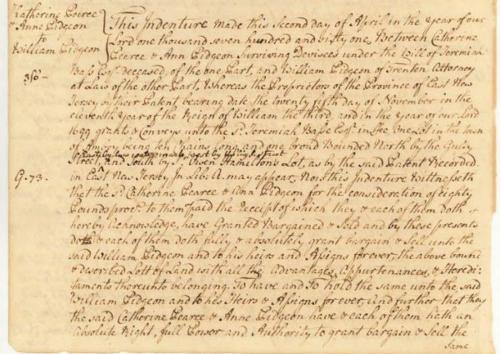 Katherine Peirce
& Anne Pidgeon
to
William Pidgeon
This Indenture made this second day of April in the Year of our
Lord one thousand seven hundred and sixty one Between Catherine
Pearce & Ann Pidgeon Surviving Devisees under the Will of Jeremiah
Bass Esqr. deceased, of the one Part, and William Pidgeon of Trenton Attorney
at Law of the other Part, Whereas the Proprietors of the Province of East New
Jersey on their Patent bearing date the twenty fifth day of November in the
eleventh Year of the Reign of William the third, and in the Year of our Lord
1699 grants & Conveys unto the sd. Jeremiah Basse Esqr. in fee One Lot in the town
of Amboy being ten Chains long and one broad Bounded North by the Gully
Street, and South by Ewen Lot, as by the said Patent Recorded
G. 73.
in East New Jersey In Lib. may appear, Now this Indenture Witnesseth
that the sd. Catherine Pearce & Ann Pidgeon for the consideration of Eighty
Pounds proc. to them paid the Receipt of which they & each of them doth
hereby Acknowledge, have Granted Bargained & Sold and by these presents
doth & each of them doth fully & absolutely grant bargain & Sell unto the
said William Pidgeon and to his heirs and Assigns forever, the above bound
& described Lott of Land with all the Advantages, Appurtenances, & Heredi-
taments thereunto belonging, To have and to hold the same unto the said
William Pidgeon and to his Heirs & Assigns forever, And further that they
the said Catherine Pearce & Anne Pidgeon have & each of them hath an
absolute Right, full Power and Authority to grant bargain & Sell the
Same